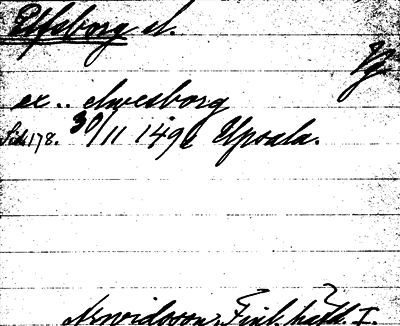 Elfsborg sl.
Vg
ex.. elwesborg
Sid. 178. 30/11 1491 Upsala.
Arwidsson, Finl. häfd I.